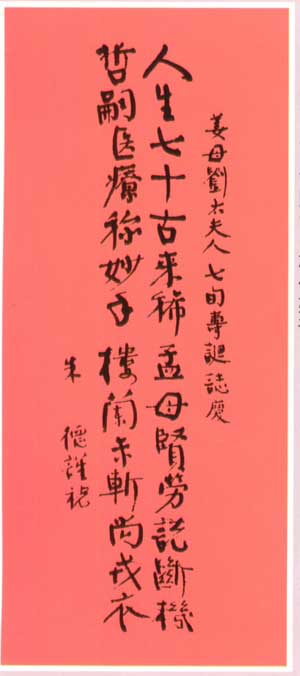 姜母劉太夫人七旬壽誕誌慶
人生七十古來稀孟母賢勞説斷機
哲嗣医療称妙手樓蘭未斬尚戎衣
朱 德謹祝